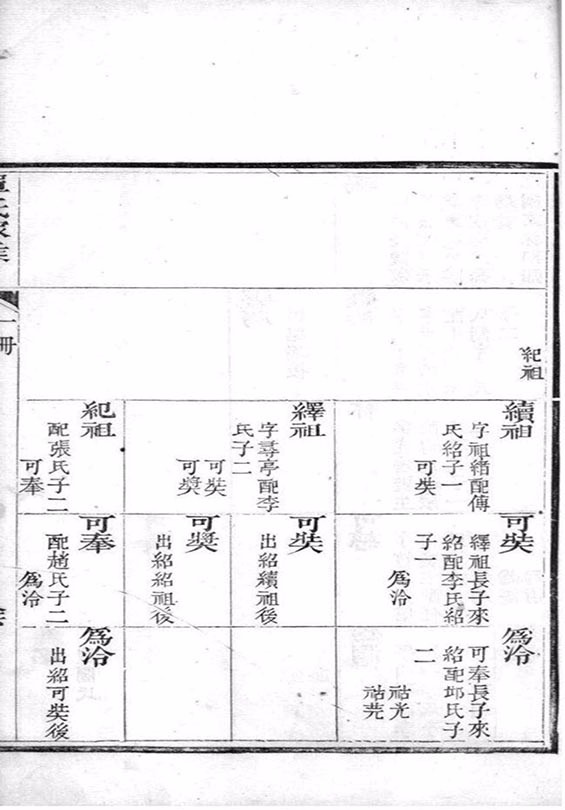 紀祖
續祖
字祖緒配傅
氏紹子一
可奘
繹祖
字尋亭配李
氏子二
可奘
可奬
紀祖
配張氏子二
可奉
可奘
繹祖長子來
紹配李氏紹
子一
爲泠
可奘
出紹續祖後
可奬
出紹紹祖後
可奉
配趙氏子二
爲泠
爲泠
可奉長子來
紹配邱氏子
二
祜光
祜芫
爲泠
出紹可奘後
氏家
一冊